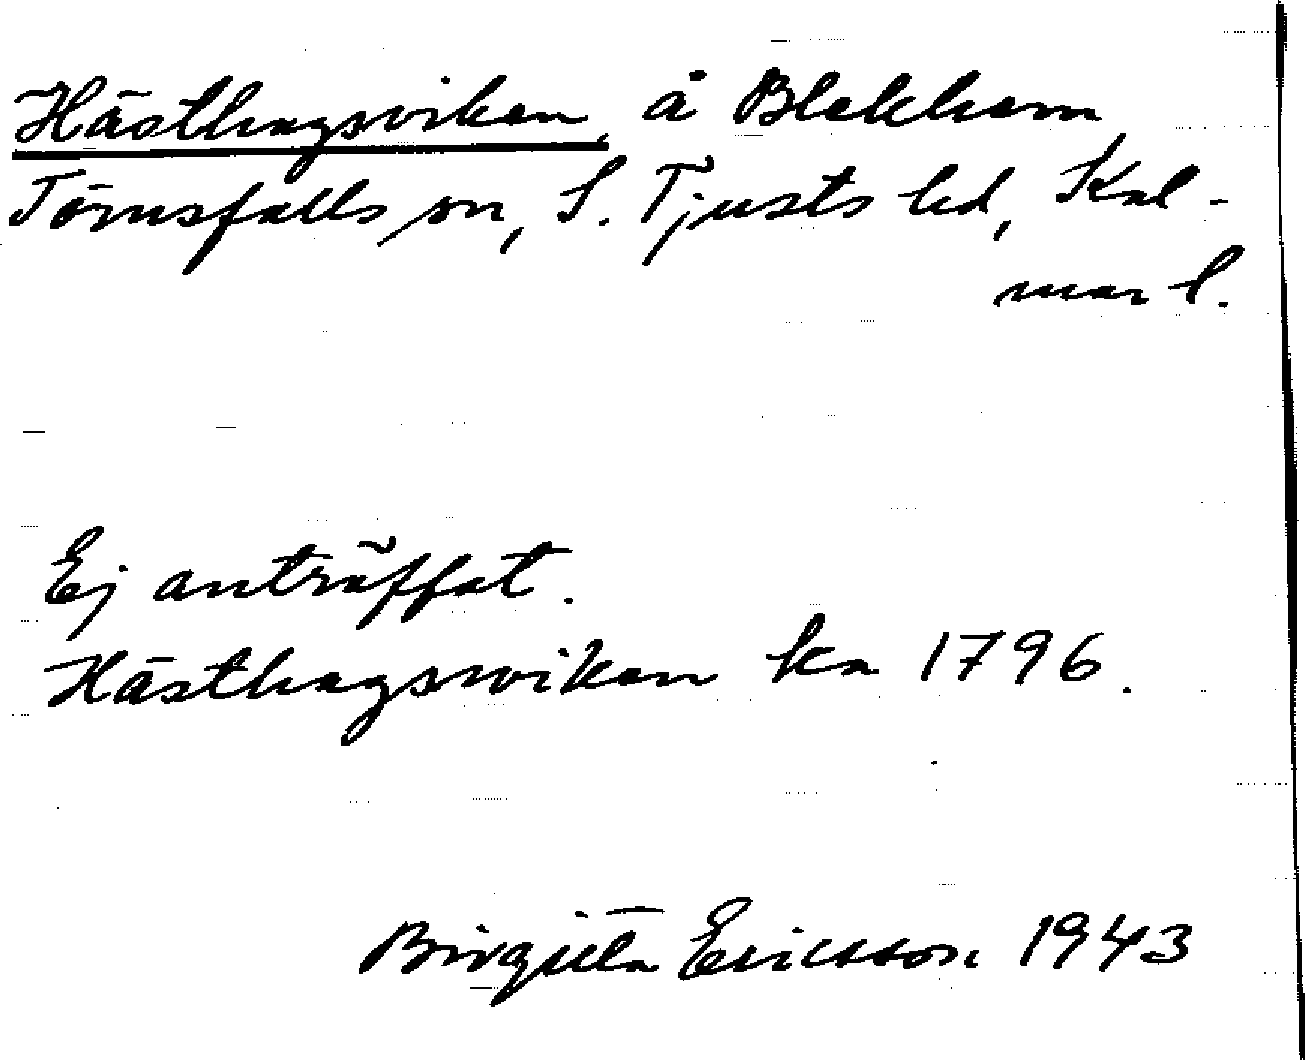 Hästhagsviken, å Blekhem
Törnsfalls sn, S. Tjusts hd, Kal-
mar l.
Ej anträffat.
Hästhagswiken ka 1796.
Birgitta Ericsson 1943